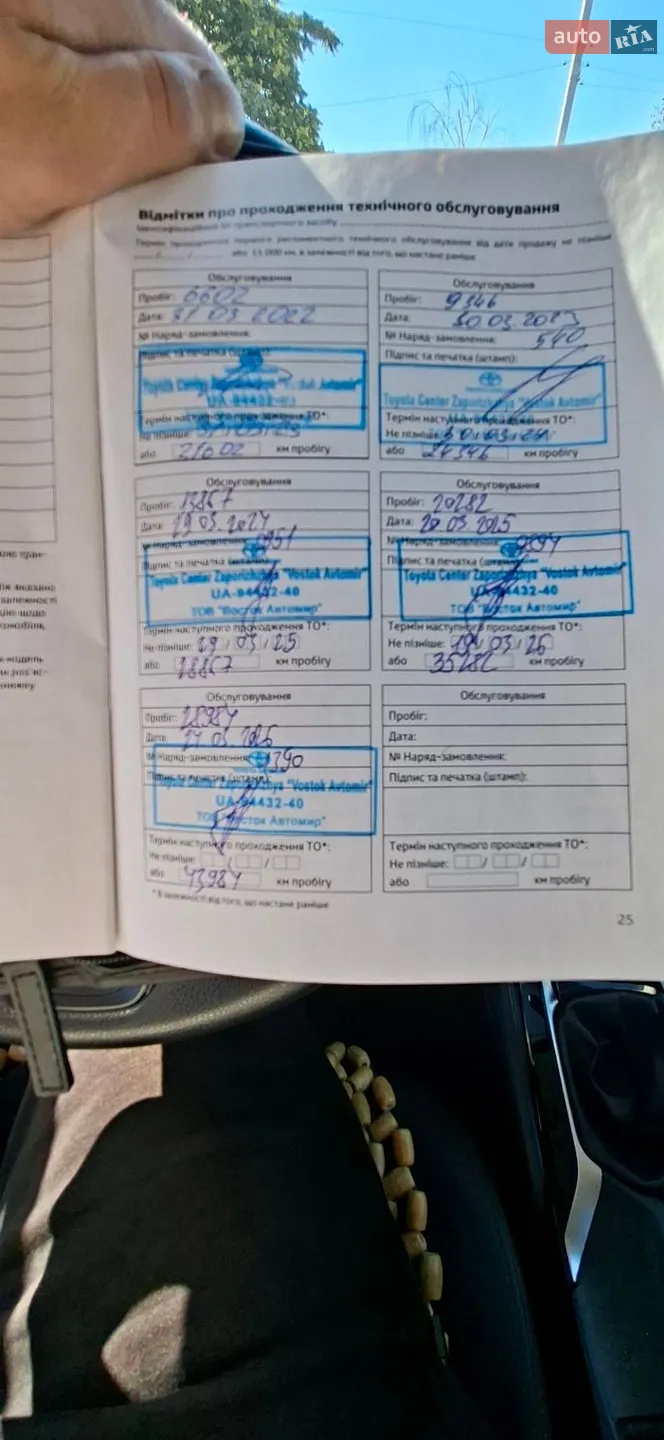 auto RIA.com
Відмітки про проходження технічного обслуговування
Ідентифікаційний № транспортного засобу
Термін проходження першого регламентного технічного обслуговування від дати продажу не пізніше
або 15 000 км, в залежності від того, що настане раніше
Обслуговування
Пробіг: 6602
Дата: 31 03 2022
№ Наряд-замовлення:
Підпис та печатка (штамп):
Toyota Center Zaporizhzhya "Vostok Avtomir"
UA-94432-40
Термін наступного проходження ТО*:
Не пізніше: 31/03/23
або 21602 км пробігу
Обслуговування
Пробіг: 9346
Дата: 30 03 2023
№ Наряд-замовлення: 540
Підпис та печатка (штамп):
Toyota Center Zaporizhzhya "Vostok Avtomir"
Термін наступного проходження ТО*:
Не пізніше: 30/03/24
або 24346 км пробігу
Обслуговування
Пробіг: 13867
Дата: 29 03 2024
№ Наряд-замовлення: 0951
Підпис та печатка (штамп):
Toyota Center Zaporizhzhya "Vostok Avtomir"
UA-94432-40
ТОВ "Восток Автомир"
Термін наступного проходження ТО*:
Не пізніше: 29/03/25
або 28867 км пробігу
Обслуговування
Пробіг: 20282
Дата: 20 03 2025
№ Наряд-замовлення: 9894
Підпис та печатка (штамп):
Toyota Center Zaporizhzhya "Vostok Avtomir"
UA-94432-40
ТОВ "Восток Автомир"
Термін наступного проходження ТО*:
Не пізніше: 03/26
або 35282 км пробігу
Обслуговування
Пробіг: 28984
Дата: 27 03 2026
№ Наряд-замовлення: 1390
Підпис та печатка (штамп):
Toyota Center Zaporizhzhya "Vostok Avtomir"
UA-94432-40
ТОВ "Восток Автомир"
Термін наступного проходження ТО*:
Не пізніше: / /
або 43984 км пробігу
Обслуговування
Пробіг:
Дата:
№ Наряд-замовлення:
Підпис та печатка (штамп):
Термін наступного проходження ТО*:
Не пізніше: / /
або км пробігу
*В залежності від того, що настане раніше
25